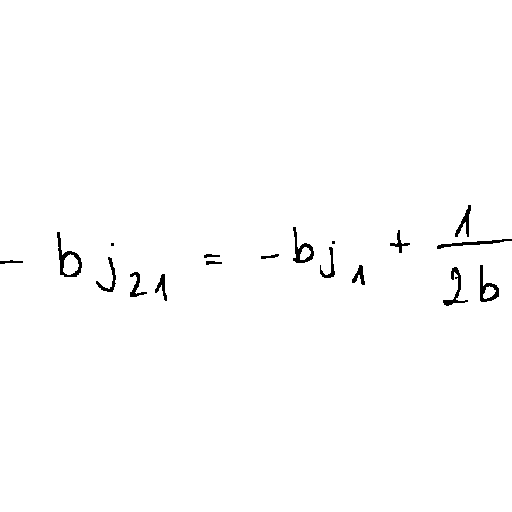 - b j_{21} = - b j_1 + \frac{1}{2b}